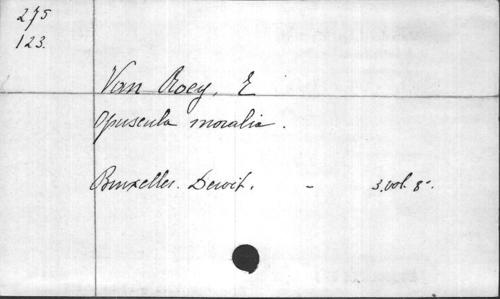 275
123.
Van Roey, E
Opuscula moralia.
Bruxelles. Dewit. - 3. vol. 8°.